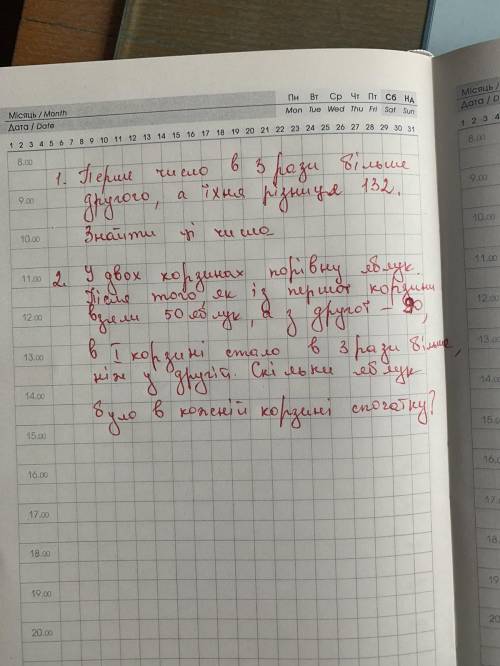 Місяць / Month
Пн Вт Ср Чт Пт Сб Нд
Mon Tue Wed Thu Fri Sat Sun
Дата / Date
1 2 3 4 5 6 7 8 9 10 11 12 13 14 15 16 17 18 19 20 21 22 23 24 25 26 27 28 29 30 31
8.00
1. Перше число в 3 рази більше
9.00 другого, а їхня різниця 132.
10.00 Знайти ці числа
11.00 2. У двох корзинах порівну яблук.
Після того як із першої корзини
12.00 взяли 50 яблук, а з другої – 90,
13.00 в I корзині стало в 3 рази більше,
ніж у другій. Скільки яблук
14.00
було в кожній корзині спочатку?
15.00
16.00
17.00
18.00
19.00
20.00
Місяць /
Дата / D
1 2 3 4
8.00
9.00
10.00
11.00
12.00
13.00
14.00
15.00
16.00
17.00
18.00
19.00
20.00